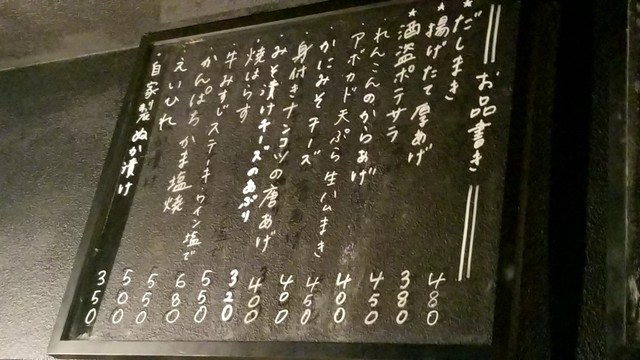 お品書き
★だしまき 480
★揚げたて厚あげ 380
★酒盗ポテサラ 450
れんこんのからあげ 400
アボカド天ぷら生ハムまき 450
かにみそチーズ 400
身付きナンコツの唐あげ 400
みそ漬けチーズのあぶり 320
焼はらす 550
牛みすじステーキ・ワイン塩で 680
かんぱち かま塩焼 550
えいひれ 500
自家製 ぬか漬け 350